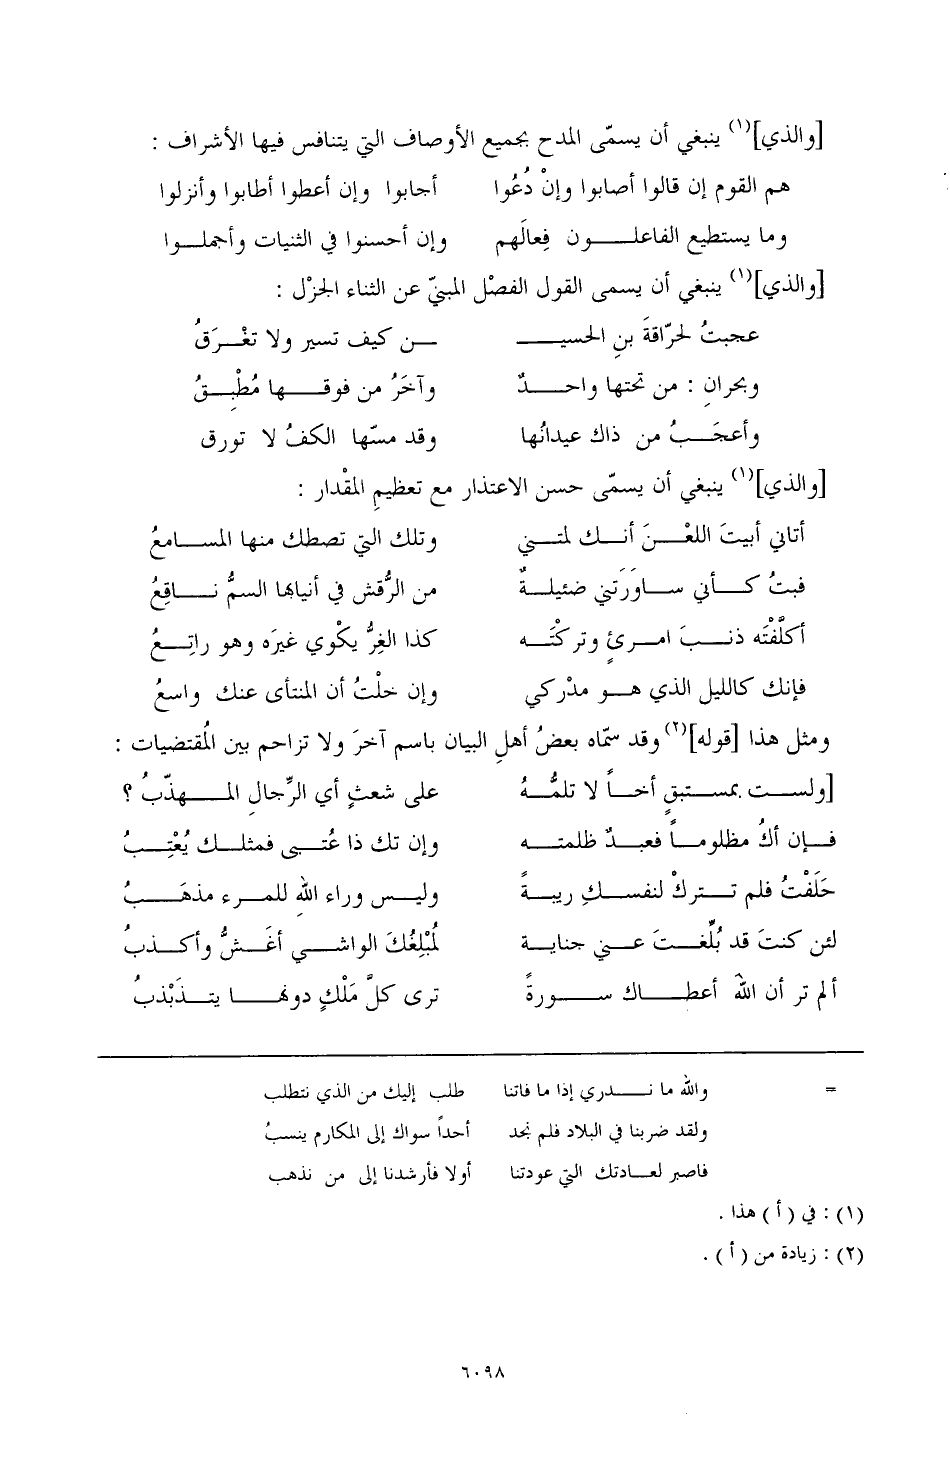 [والذي](١) ينبغي أن يسمّى المدح بجميع الأوصاف التي يتنافس فيها الأشراف :
هم القوم إن قالوا أصابوا وإنْ دُعُوا أجابوا وإن أعطوا أطابوا وأنزلوا
وما يستطيع الفاعلـــون فِعالَهم وإن أحسنوا في الثنيات وأجملـوا
[والذي](١) ينبغي أن يسمى القول الفصْل المبنيّ عن الثناء الجزْل :
عجبتُ لحرّاقةَ بنِ الحسيـــــ ـــن كيف تسير ولا تغْـرَقُ
وبحرانِ : من تحتها واحـــدٌ وآخَرُ من فوقـــها مُطْبِـقُ
وأعجَـبُ من ذاك عيدانُها وقد مسّها الكفُ لا تورق
[والذي](١) ينبغي أن يسمّى حسن الاعتذار مع تعظيمِ المقْدار :
أتاني أبيتَ اللعْـنَ أنـك لمتـني وتلك التي تصطك منها المسـامعُ
فبتُ كـأني سـاوَرَتني ضئيلـةٌ من الرُّقش في أنيابها السمُّ نـاقِعُ
أكلَّفْتَه ذنـبَ امـرئٍ وتركْتَـه كذا الغِرُّ يكْوي غيرَه وهو راتِـعُ
فإنك كالليل الذي هـو مدْركي وإن خلْتُ أن المنتأى عنك واسعُ
ومثل هذا [قوله](٢) وقد سمّاه بعضُ أهلِ البيان باسم آخرَ ولا تزاحم بين المُقتضيات :
[ولسـت بمستبقٍ أخـاً لا تلمُّـهُ على شعثٍ أي الرِّجال المـهذّبُ ؟
فـإن أكُ مظلومـاً فعبـدٌ ظلمتـه وإن تك ذا عُتـبى فمثلـك يُعْتِـبُ
حَلَفْتُ فلم تـتركْ لنفسـكِ ريبـةً وليـس وراءَ اللهِ للمـرء مذهَـبُ
لئن كنتَ قد بُلِّغـتَ عـني جنايـة لمُبْلِغُكَ الواشـي أغَـشُّ وأكـذبُ
ألم تر أن اللهَ أعطـاك سـورةً تَرى كلَّ مَلْكٍ دونهـا يتـذَبْذبُ
= والله ما نـدري إذا ما فاتنا طلب إليك من الذي نتطلب
ولقد ضربنا في البلاد فلم نجد أحداً سواك إلى المكارم ينسبُ
فاصبر لعـادتك التي عودتنا أولا فأرشدنا إلى من نذهب
(١) : في ( أ ) هذا .
(٢) : زيادة من ( أ ) .
٦٠٩٨